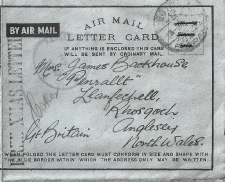 AIR MAIL
BY AIR MAIL
LETTER CARD
IF ANYTHING IS ENCLOSED THIS CARD
WILL BE SENT BY ORDINARY MAIL.
Mrs. James Backhouse
"Penrallt"
Llanfechell,
Rhosgoch
Anglesey
Gt Britain
North Wales.
XMAS LETTER
WHEN FOLDED THE LETTER CARD MUST CONFORM IN SIZE AND SHAPE WITH
THE BLUE BORDER WITHIN WHICH THE ADDRESS ONLY MAY BE WRITTEN.